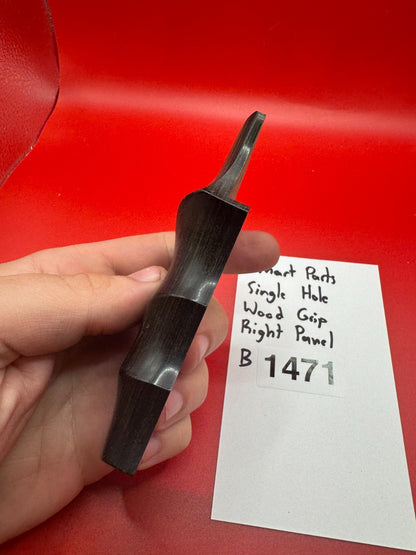 mart Parts
Single Hole
Wood Grip
Right Panel
B 1471